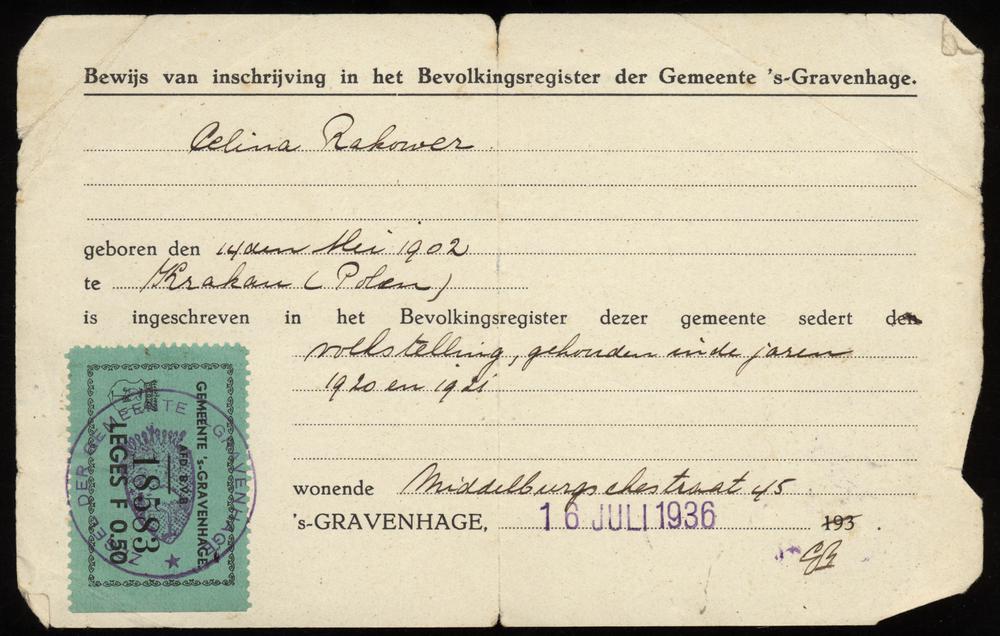 Bewijs van inschrijving in het Bevolkingsregister der Gemeente 's-Gravenhage.
Celina Rakower
geboren den 14den Mei 1902
te Krakau (Polen)
is ingeschreven in het Bevolkingsregister dezer gemeente sedert den
volkstelling, gehouden in de jaren
1920 en 1921
wonende Middelburgschestraat 45
's-GRAVENHAGE, 16 JULI 1936 193 .
GEMEENTE 's-GRAVENHAGE
AFD. B.V.B.
18583
LEGES F 0.50
DER GEMEENTE 'S-GRAVENHAGE